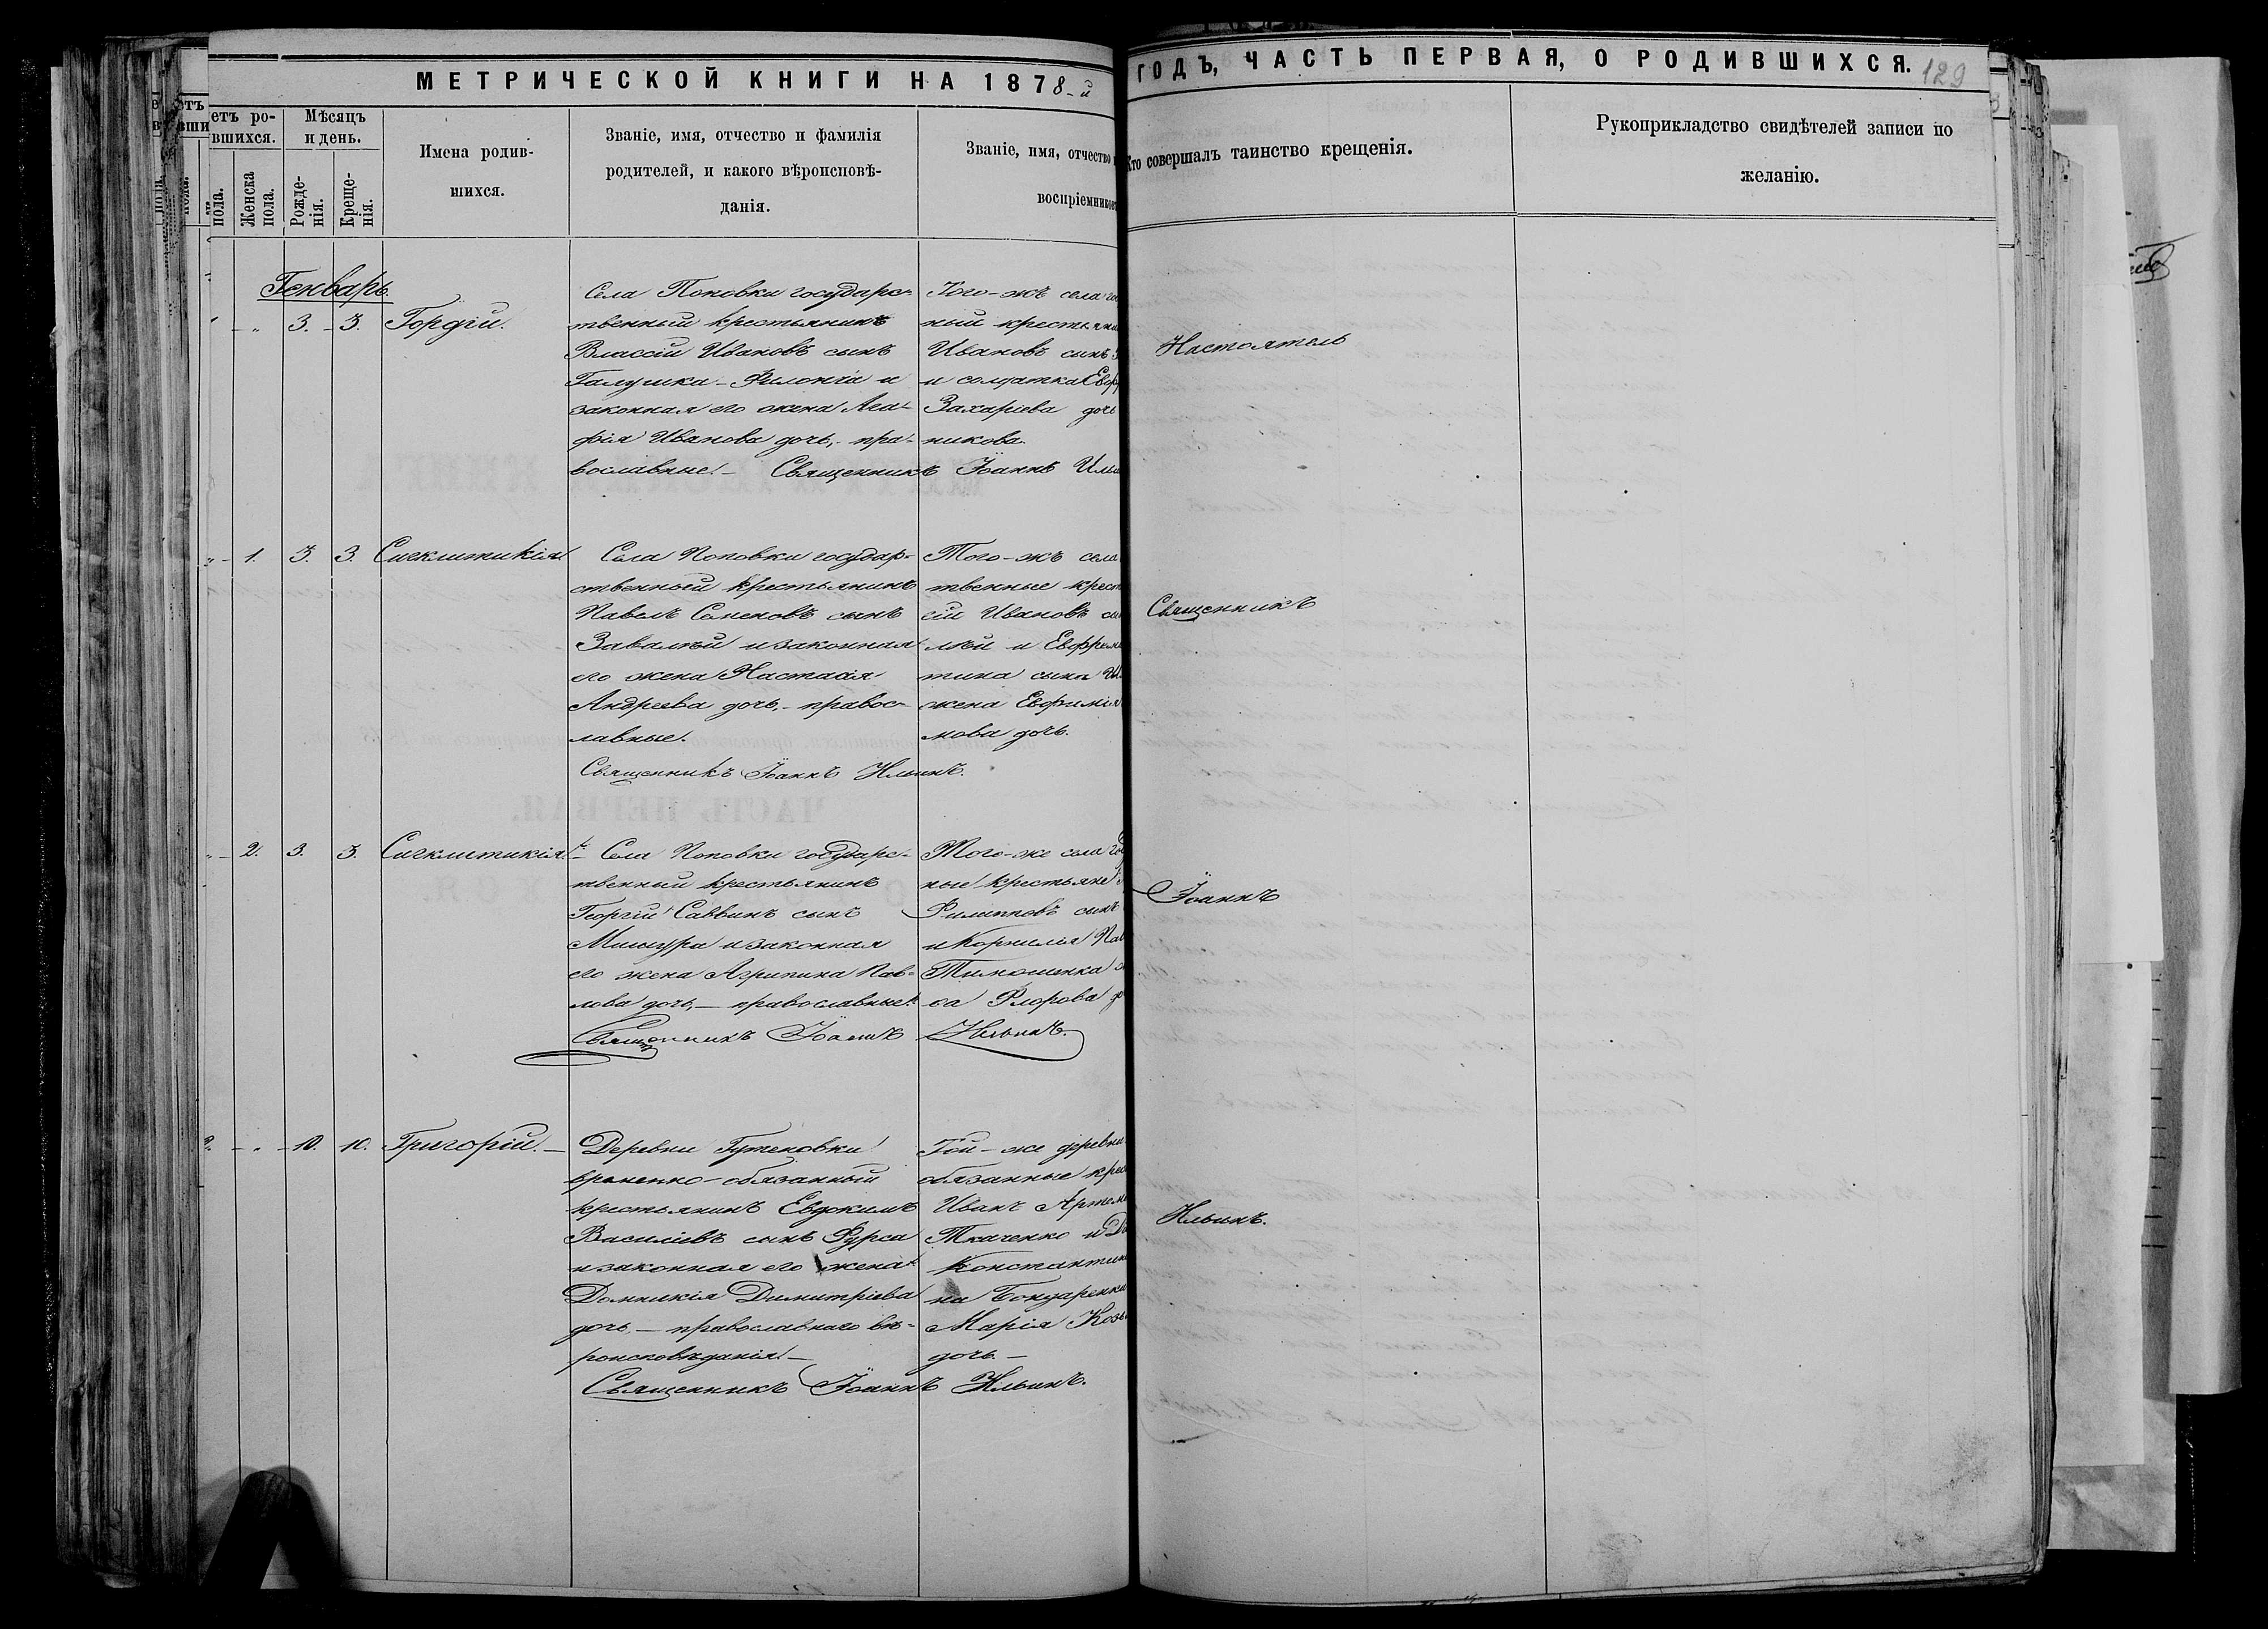 МЕТРИЧЕСКОЙ КНИГИ НА 1878-й
ГОДЪ, ЧАСТЬ ПЕРВАЯ, О РОДИВШИХСЯ. 129
етъ ро-
вшихся.
пола.
Женска
пола.
Мѣсяцъ
и день.
Рожде-
нія.
Креще-
нія.
Имена родив-
шихся.
Званіе, имя, отчество и фамилія
родителей, и какого вѣроисповѣ-
данія.
Званіе, имя, отчество
воспріемников
Кто совершалъ таинство крещенія.
Рукоприкладство свидѣтелей записи по
желанію.
Генварь.
1 - „ 3. - 3. Гордій.
Села Поповки государс-
твенный крестьянинъ
Влассій Ивановъ сынъ
Галушка - и
законная его жена Ага-
фія Иванова дочь, - пра-
вославные. - Священникъ Іоаннъ Ильи
Того-жъ села го
ный крестьяни
Ивановъ сынъ
и солдатка Евф
Захаріева дочь
никова.
Настоятель
„ - 1. 3. 3. Сигклитикія.
Села Поповки государ-
ственный крестьянинъ
Павелъ Семеновъ сынъ
Завалій и законная
его жена Настасія
Андреева дочь, - правос-
лавные.
Священникъ Іоаннъ Ильинъ.
Того-жъ села
твенные крест
гій Ивановъ сы
лій и Ефрем
тина сына
жена Евфимія
мова дочь.
Священникъ
„ - 2. 3. 3. Сигклитикія.
Села Поповки государс-
твенный крестьянинъ
Георгій Саввинъ сынъ
Мишура и законная
его жена Агрипина Пав-
лова дочь, - православные.
Священникъ Іоаннъ Ильинъ.
Того-же села го
ные крестьяне
Филипповъ сынъ
и Корнилія Пав
Тимошенка
са Флорова до
Іоаннъ
2. - „ - 10. 10. Григорій. -
Деревни Гутеновки
временно-обязанный
крестьянинъ Евдокимъ
Василіевъ сынъ Фурса
и законная его жена
Домникія Димитріева
дочь, - православнаго вѣ-
роисповѣданія. -
Священникъ Іоаннъ Ильинъ.
Той-же деревни
обязанные крес
Иванъ Артем
Ткаченко и
Константин
на Бондаренка
Марія Козь
дочь. -
Ильинъ.